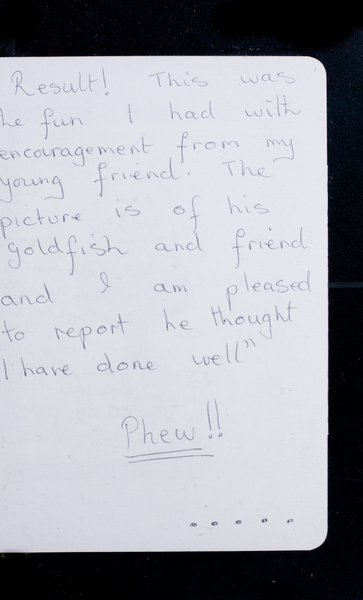 Result! This was
he fun I had with
encouragement from my
young friend. The
picture is of his
goldfish and friend
and I am pleased
to report he thought
I have done well"
Phew!!